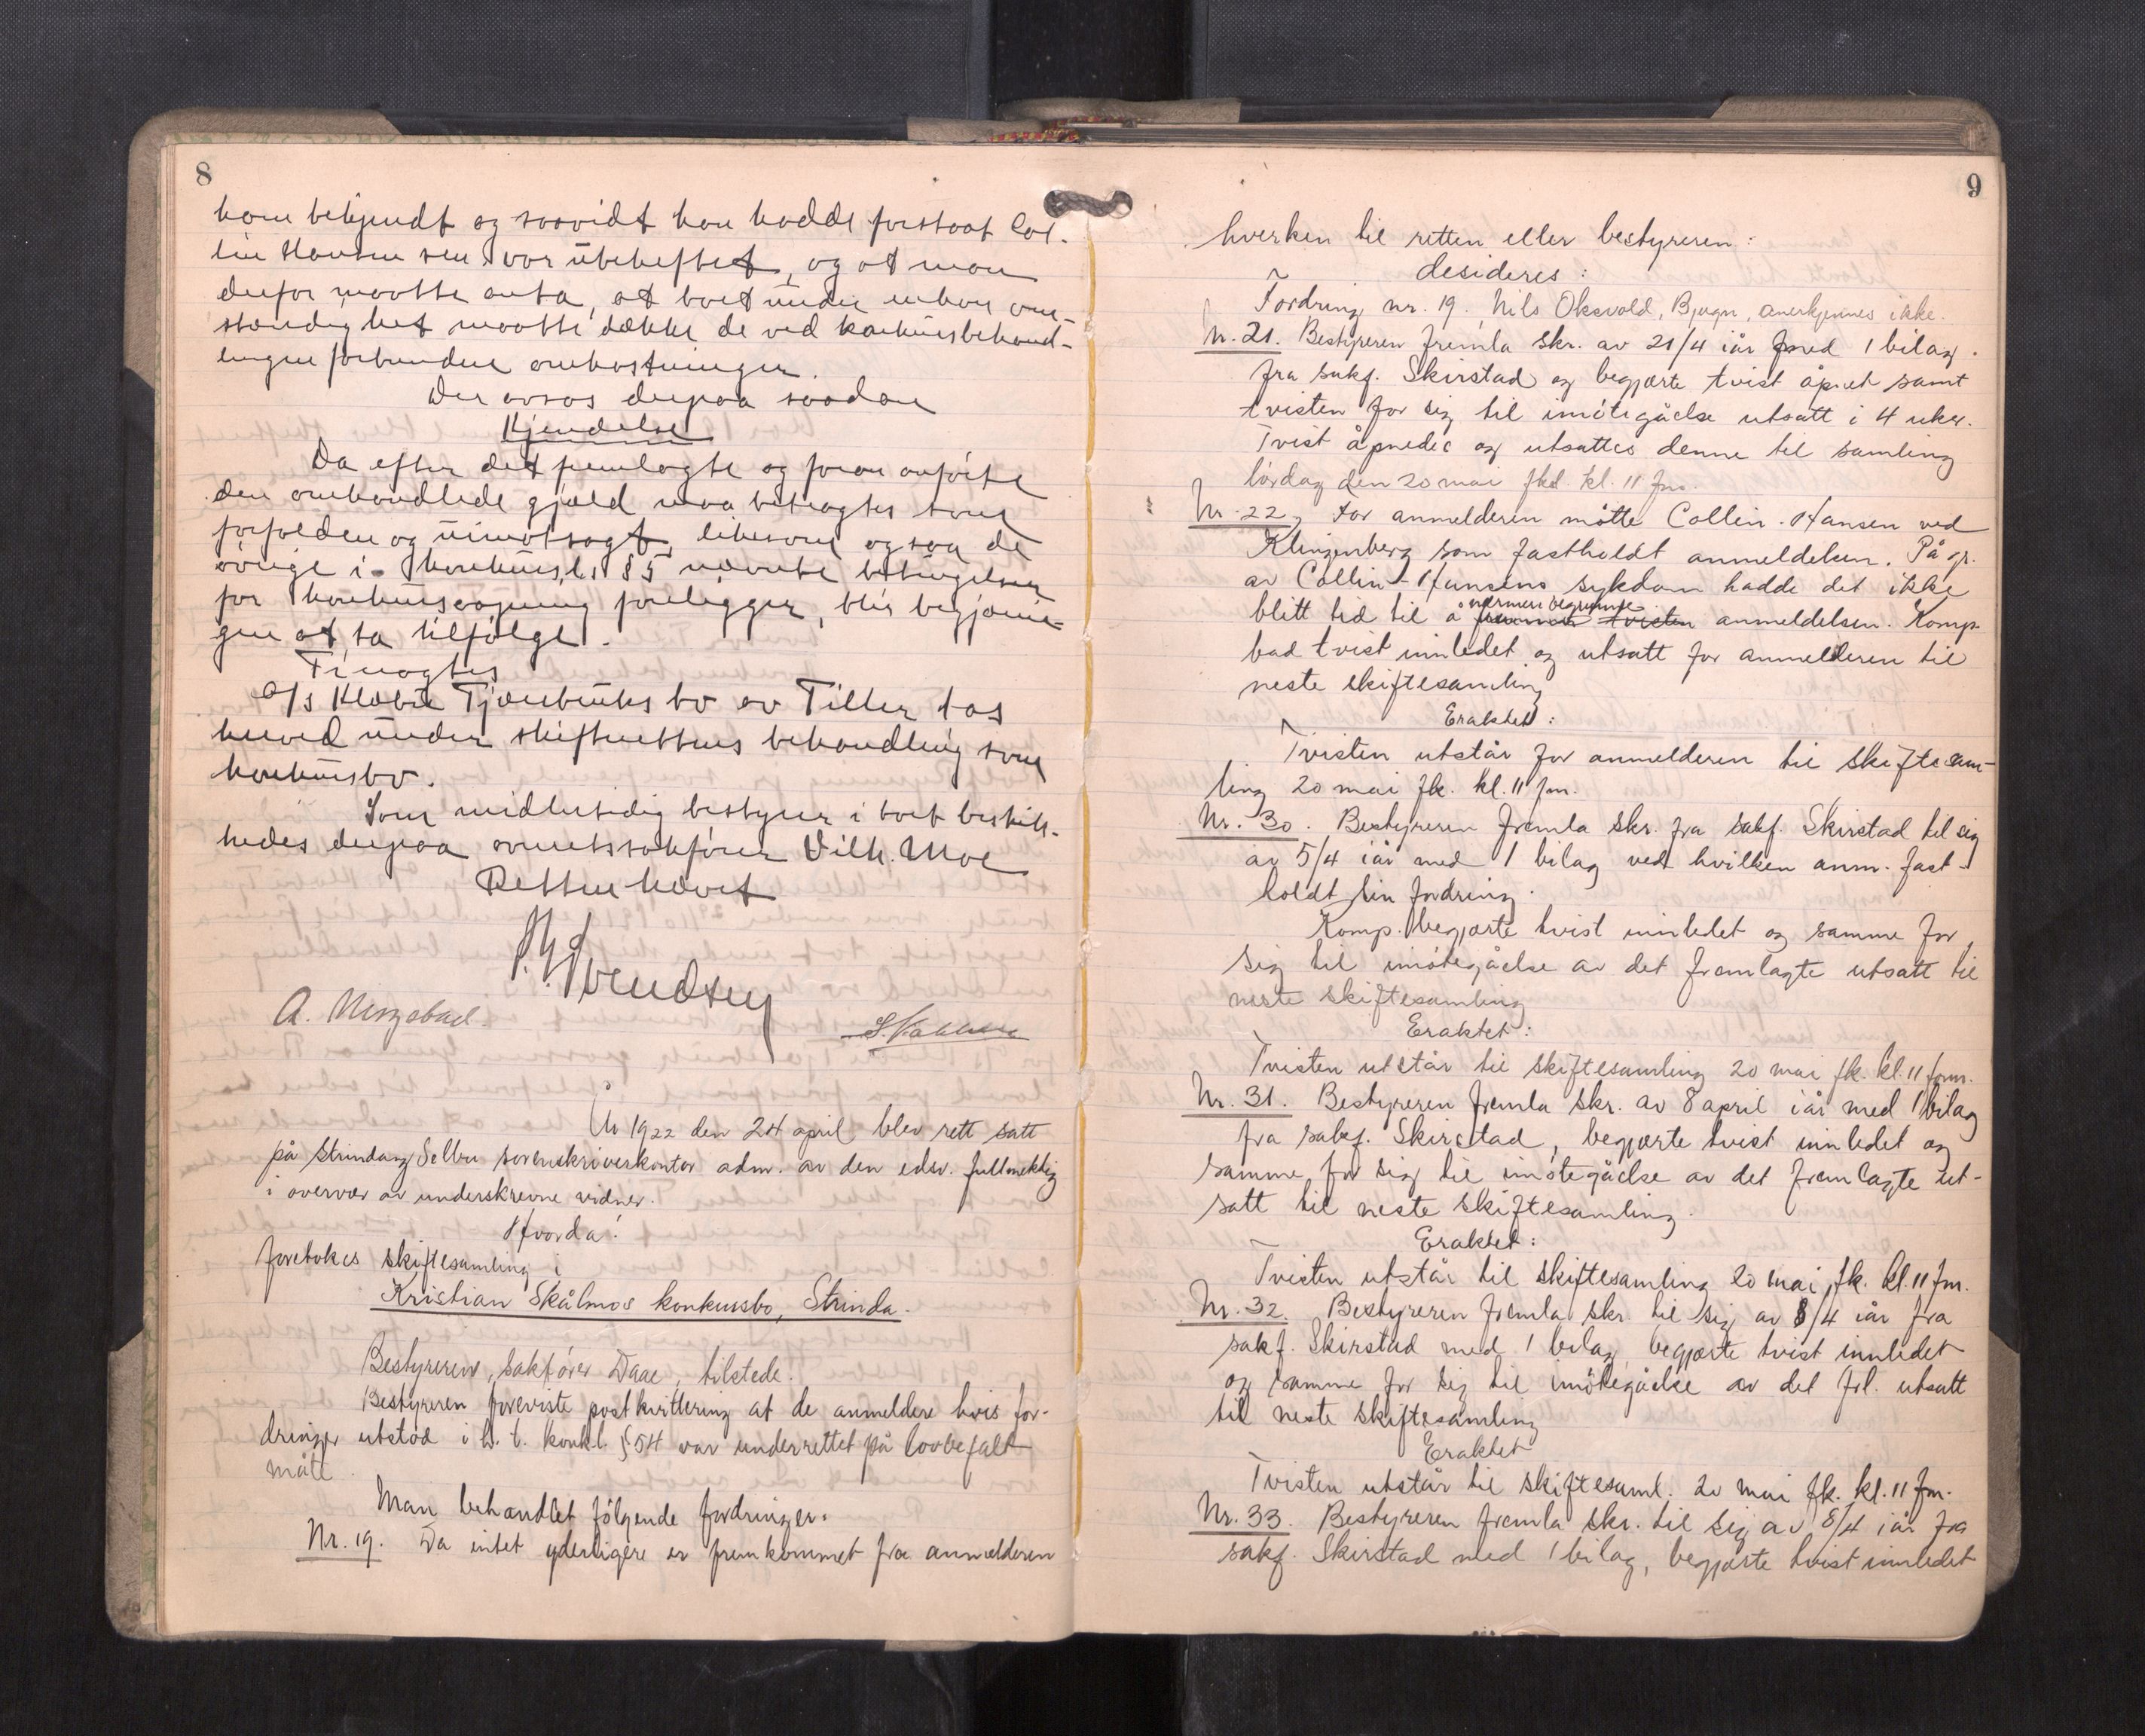 8
ham bekjendt og saavidt han hadde forstaat Col-
lin Hansen sen. var ubeheftet, og at man
derfor maatte anta, at boet under enhver om-
stændighet maatte dække de ved konkursbehand-
lingen forbundne omkostninger.
Der avsas derpaa saadan
Kjendelse
Da efter det fremlagte og foran anførte
den omhandlede gjæld maa betragtes som
forfalden og uimotsagt, likesom ogsaa de
øvrige i konkursl.s § 5 nævnte betingelser
for konkursaapning foreligger, blir begjærin-
gen at ta tilfølge.
Ti eragtes
A/s Klæbu Tjærebruks bo av Tiller tas
herved under skifterettens behandling som
konkursbo.
Som midlertidig bestyrer i boet beskik-
kedes derpaa overretssakfører Vilh. Moe
Retten hævet
Svendsen
A.
År 1922 den 24 april blev rett satt
på Strinda og Selbu sorenskriverkontor adm. av den edsv. fullmektig
i overvær av underskrevne vidner.
Hvorda!
foretokes skiftesamling i
Kristian Skålmos konkursbo, Strinda.
Bestyreren, sakfører Daae, tilstede.
Bestyreren foreviste postkvittering at de anmeldere hvis for-
dringer utstod i h. t. konk.l. § 54 var underrettet på lovbefalt
måte.
Man behandlet følgende fordringer:
Nr. 19. Da intet yderligere er fremkommet fra anmelderen
9
hverken til retten eller bestyreren:
desideres:
Fordring nr. 19. Nils Oksvold, Bjugn, anerkjennes ikke.
Nr. 21. Bestyreren fremla skr. av 21/4 iår med 1 bilag
fra sakf. Skirstad og begjærte tvist åpnet samt
tvisten for sig til imøtegåelse utsatt i 4 uker.
Tvist åpnedes og utsattes denne til samling
lørdag den 20 mai fkd. kl. 11 fm.
Nr. 22, For anmelderen møtte Collin-Hansen ved
Klingenberg som fastholdt anmeldelsen. På gr.
av Collin-Hansens sykdom hadde det ikke
nærmere begrunne
blitt tid til å tvisten anmeldelsen. Komp.
bad tvist innledet og utsatt for anmelderen til
neste skiftesamling
Eraktet:
Tvisten utstår for anmelderen til skiftesam-
ling 20 mai fk. kl. 11 fm.
Nr. 30. Bestyreren fremla skr. fra sakf. Skirstad til sig
av 5/4 iår med 1 bilag ved hvilken anm. fast-
holdt sin fordring.
Komp. begjærte tvist innledet og samme for
sig til imøtegåelse av det fremlagte utsatt til
neste skiftesamling
Eraktet:
Tvisten utstår til skiftesamling 20 mai fk. kl. 11 form.
Nr. 31. Bestyreren fremla skr. av 8 april iår med 1 bilag
fra sakf. Skirstad, begjærte tvist innledet og
samme for sig til imøtegåelse av det fremlagte ut-
satt til neste skiftesamling.
Eraktet:
Tvisten utstår til skiftesamling 20 mai fk. kl. 11 fm.
Nr. 32. Bestyreren fremla skr. til sig av 8/4 iår fra
sakf. Skirstad med 1 bilag, begjærte tvist innledet
og samme for sig til imøtegåelse av det frl. utsatt
til neste skiftesamling
Eraktet
Tvisten utstår til skiftesaml. 20 mai fk. kl. 11 fm.
Nr. 33. Bestyreren fremla skr. til sig av 8/4 iår fra
sakf. Skirstad med 1 bilag, begjærte tvist innledet